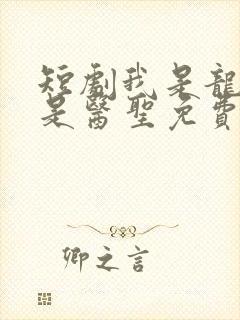 短劇我是龍
是醫聖免費
卿之言